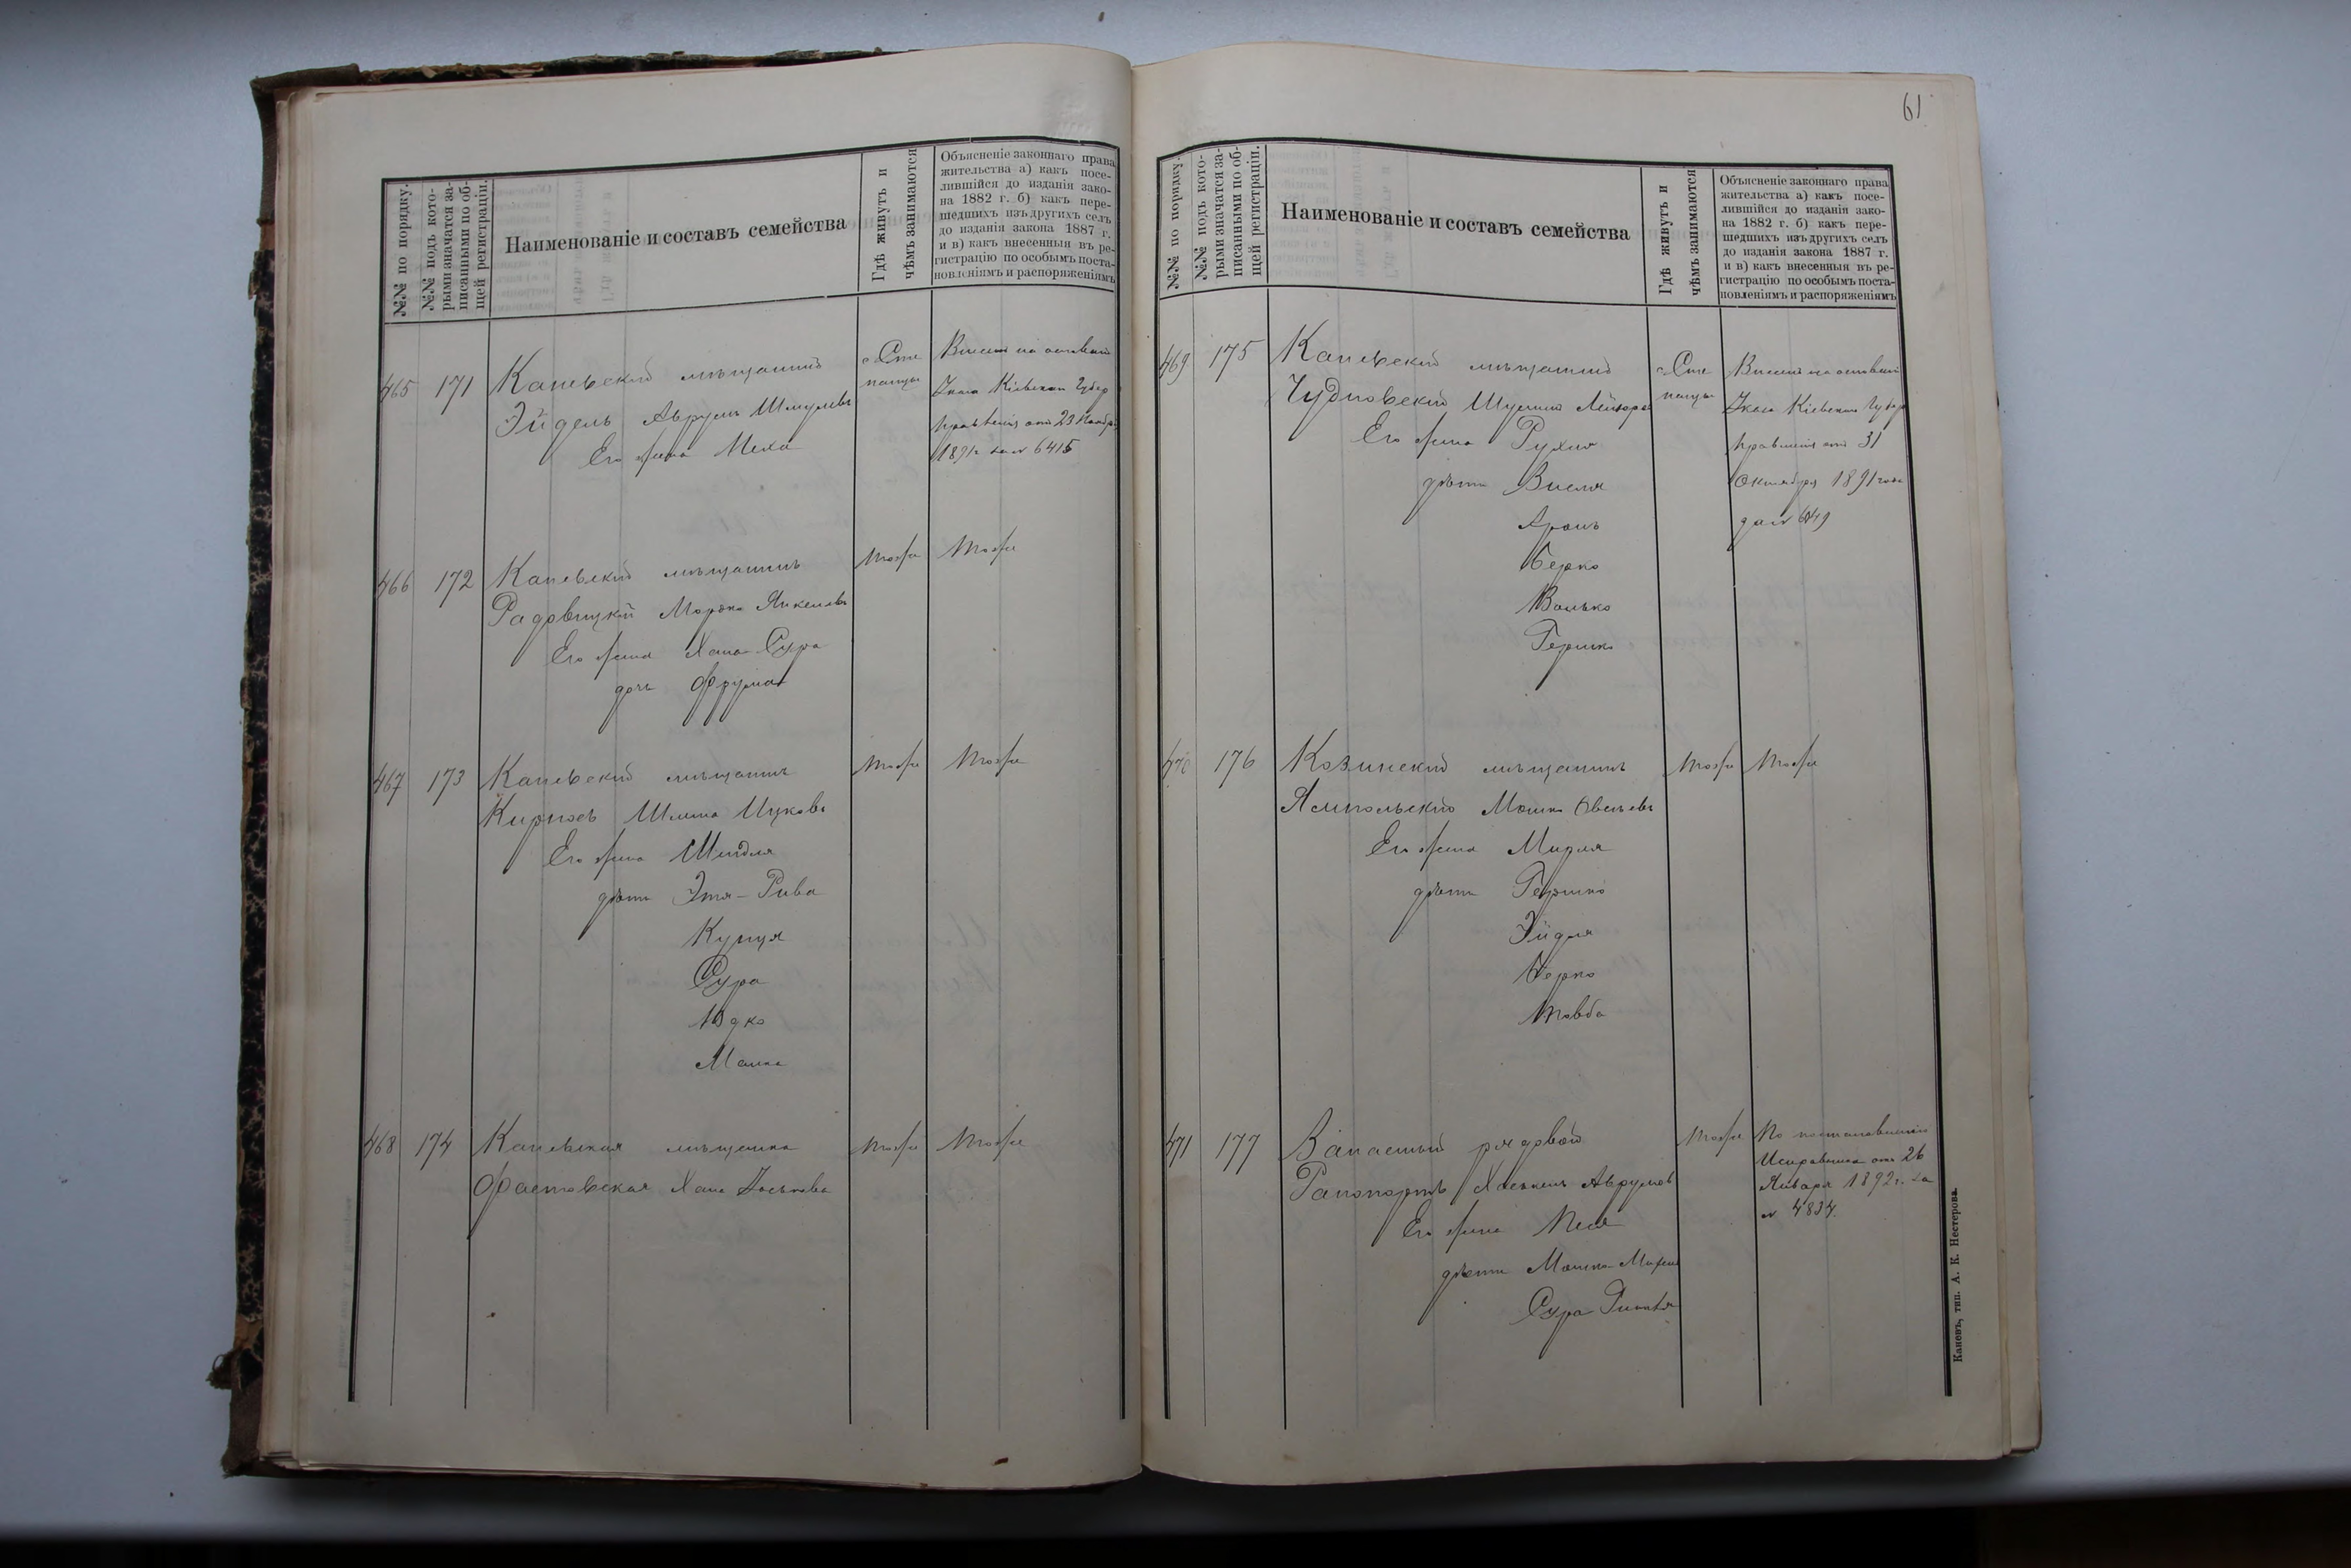 №№ по порядку.
№№ подъ кото-
рыми значатся за-
писанными по об-
щей регистраціи.
Наименованіе и составъ семейства
Гдѣ живутъ и
чѣмъ занимаются
Объясненіе законнаго права
жительства а) какъ посе-
лившійся до изданія зако-
на 1882 г. б) какъ пере-
шедшихъ изъ другихъ селъ
до изданія закона 1887 г.
и в) какъ внесенныя въ ре-
гистрацію по особымъ поста-
новленіямъ и распоряженіямъ
465 171 Каневскій мѣщанинъ
Эйдель Аврумъ Шмулевъ
Его жена Меха
с. Сте
панцы
Внесенъ на основаніи
Указа Кіевскаго Губер
Правленія отъ 23 Ноября
1891 г. за № 6415
466 172 Каневскій мѣщанинъ тоже тоже
Радовицкій Мордко Янкелевъ
Его жена Хана-Сура
дочь Фрума
467 173 Каневскій мѣщанинъ тоже тоже
Кирносъ Шлема Ицковъ
Его жена Шендля
дѣти Этя-Рива
Купця
Сура
Юдко
Малка
468 174 Каневская мѣщанка тоже тоже
Фастовская Хана Іоськова
61
№№ по порядку.
№№ подъ кото-
рыми значатся за-
писанными по об-
щей регистраціи.
Наименованіе и составъ семейства
Гдѣ живутъ и
чѣмъ занимаются
Объясненіе законнаго права
жительства а) какъ посе-
лившійся до изданія зако-
на 1882 г. б) какъ пере-
шедшихъ изъ другихъ селъ
до изданія закона 1887 г.
и в) какъ внесенныя въ ре-
гистрацію по особымъ поста-
новленіямъ и распоряженіямъ
469 175 Каневскій мѣщанинъ
Чудновскій
Его жена Рухля
дѣти
Аронъ
Берко
Волько
Гершко
с. Сте
панцы
Внесенъ на основаніи
Указа Кіевскаго Губер
Правленія отъ 31
Октября 1891 года
за №
470 176 Козинскій мѣщанинъ тоже тоже
Ямпольскій Мошко Овсѣевъ
Его жена Мирля
дѣти Гершко
Эйдля
Берко
Товба
471 177 Запасный рядовой тоже
Рапопортъ Хаскель Аврумовъ
Его жена Песя
дѣти Мошко
Сура
По постановленію
Исправника отъ 26
Января 1892 г. за
№ 4834.
Каневъ, тип. А. К. Нестерова.